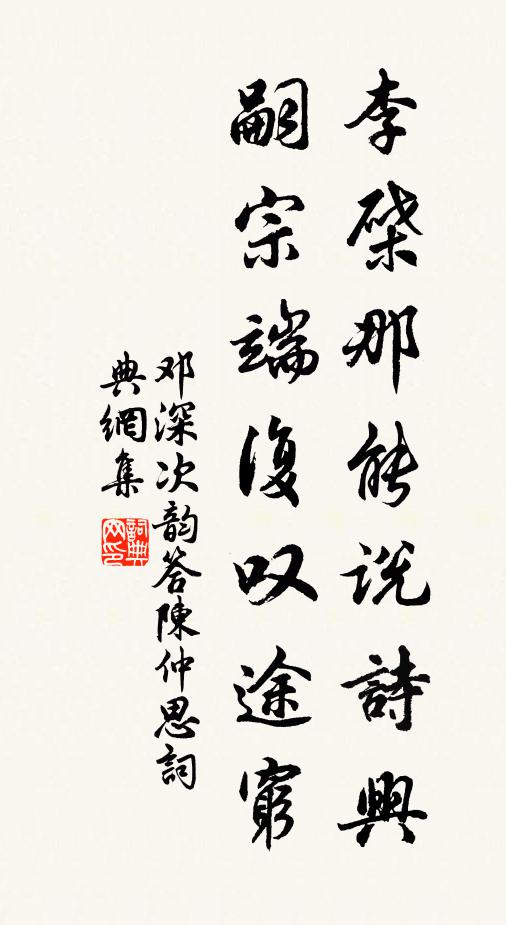 李檗那能说詩興
嗣宗端復叹途窮
邓深次韵答陳仲思詞
典網集
詞典网印